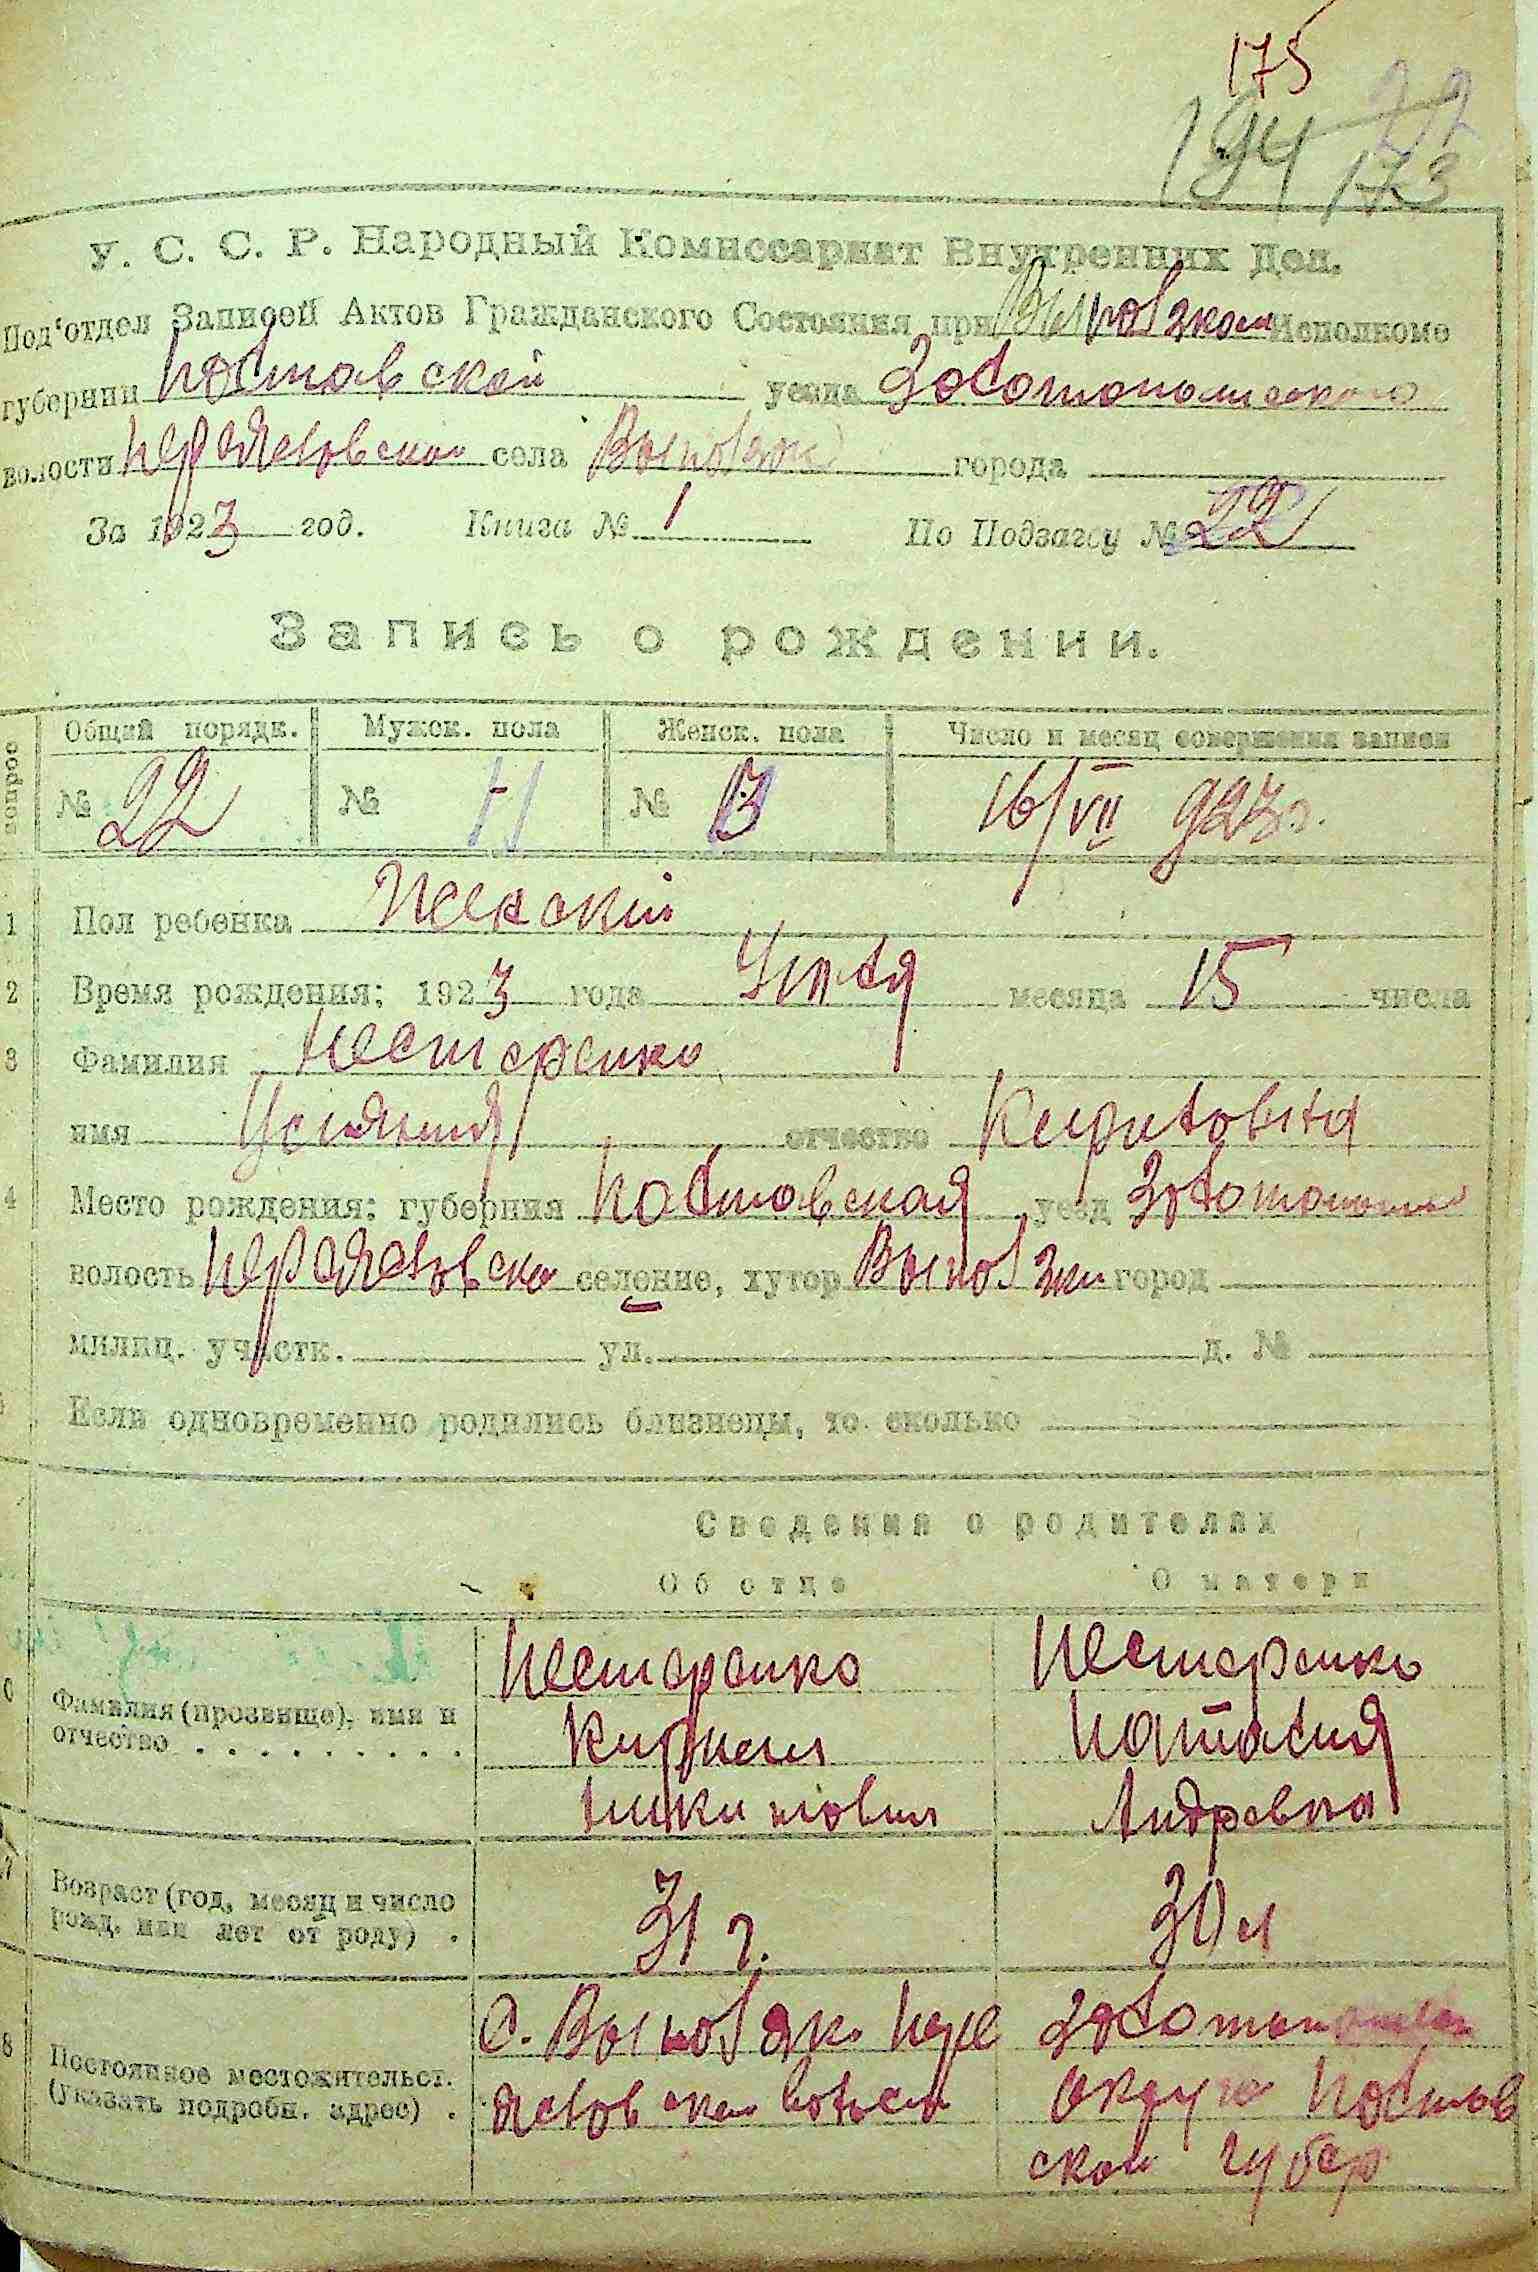 175
194 22
173
У. С. С. Р. Народный Комиссариат Внутренних Дел.
Под'отдел Записей Актов Гражданского Состояния при Выповзком Исполкоме
губернии Полтавской уезда Золотоношского
волости села Выповзки города
За 1923 год. Книга № 1 По Подзагсу № 22
Запись о рождении.
вопрос Общий порядк. Мужск. пола Женск. пола Число и месяц совершения записи
№ 22 № № 13 16/VII 923 г.
1 Пол ребенка Женский
2 Время рождения: 1923 года Июля месяца 15 числа
3 Фамилия Нестеренко
имя отчество Кириловна
4 Место рождения: губерния Полтавская уезд Золотонош
волость селение, хутор Выповзки город
милиц. участк. ул. д. №
Если одновременно родились близнецы, то сколько
Сведения о родителях
Об отце О матери
Фамилия (прозвище), имя и отчество Нестеренко Нестеренко
Наталия
Андревна
7 Возраст (год, месяц и число рожд. или лет от роду) 31 г. 30 л
8 Постоянное местожительст. (указать подробн. адрес) С. Золотонош
округа Полтав
ской губер